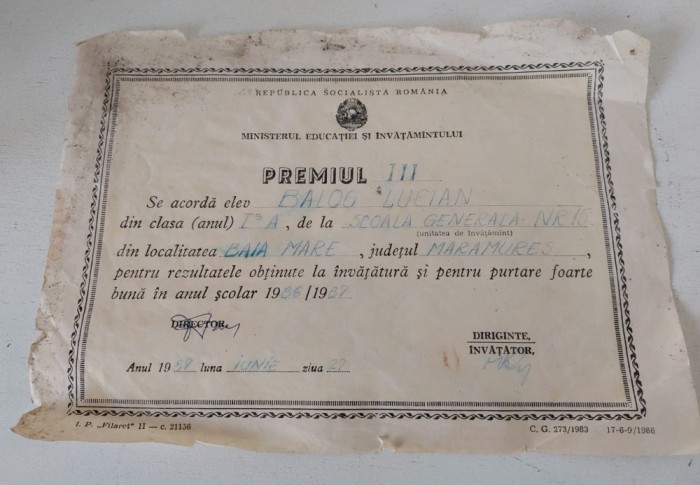 REPUBLICA SOCIALISTĂ ROMÂNIA
MINISTERUL EDUCAȚIEI ȘI ÎNVĂȚĂMÎNTULUI
PREMIUL III
Se acordă elev BALOG LUCIAN
din clasa (anul) I A, de la ȘCOALA GENERALĂ NR 10
(unitatea de învățămînt)
din localitatea BAIA MARE, județul MARAMUREȘ,
pentru rezultatele obținute la învățătură și pentru purtare foarte
bună în anul școlar 1986/1987
DIRECTOR,
DIRIGINTE,
ÎNVĂȚĂTOR,
Anul 1987 luna IUNIE ziua 27
I. P. „Filaret" II — c. 21156
C. G. 273/1983 17-6-9/1986